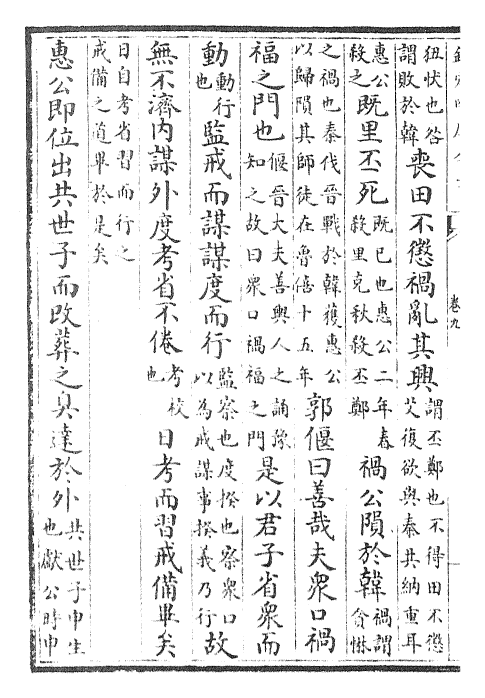 狃忕也咎
謂敗於韓
喪田不懲禍亂其興
謂丕鄭也不得田不懲
艾復欲與秦共納重耳
惠公
殺之
既里丕死
既已也惠公二年春
殺里克秋殺丕鄭
禍公隕於韓
禍謂
貪惏
之禍也秦伐晉戰於韓獲惠公
以歸隕其師徒在魯僖十五年
郭偃曰善哉夫衆口禍
福之門也
偃晉大夫善輿人之誦豫
知之故曰衆口禍福之門
是以君子省衆而
動
動行
也
監戒而謀謀度而行
監察也度揆也察衆口
以為戒謀事揆義乃行
故
無不濟內謀外度考省不倦
考校
也
日考而習戒備畢矣
日自考省習而行之
戒備之道畢於是矣
惠公即位出共世子而改葬之臭達於外
共世子申生
也獻公時申
卷九